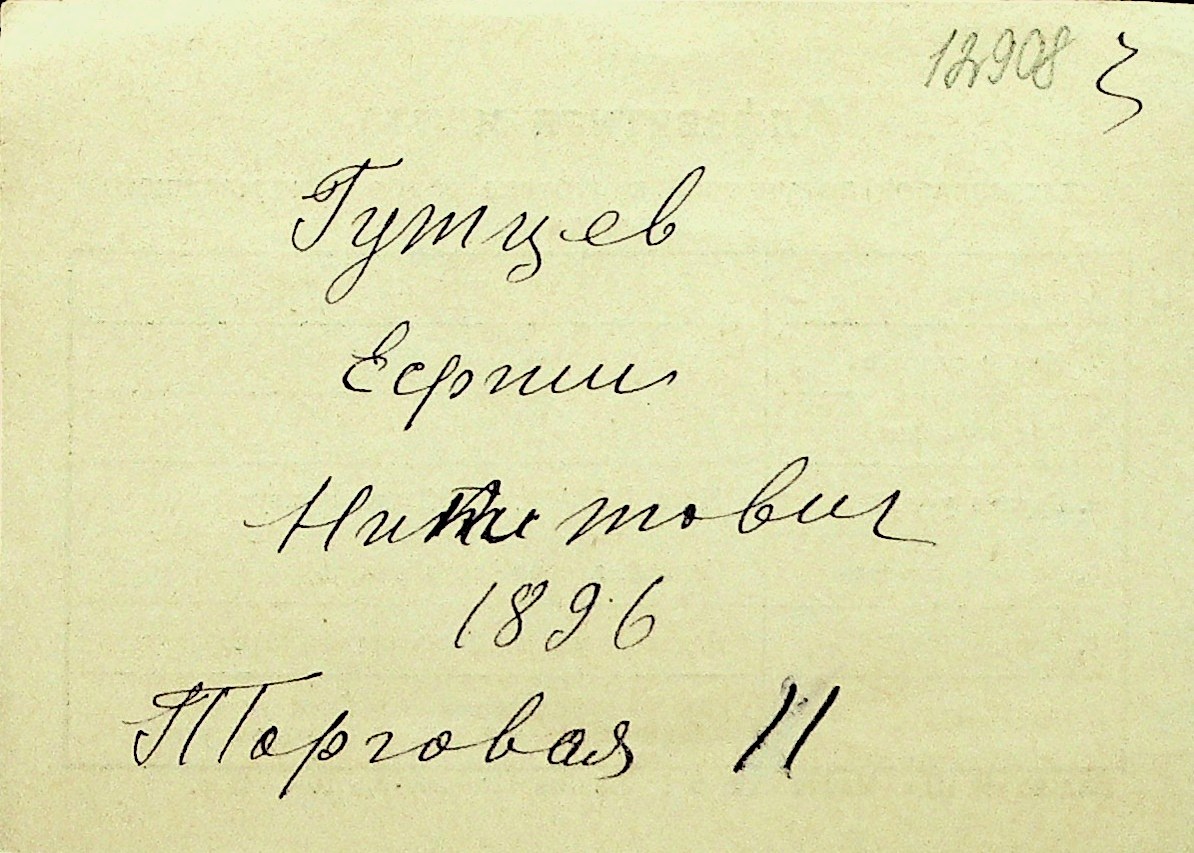 12908
Гутцев
Ефим
Никитович
1896
Торговая 11